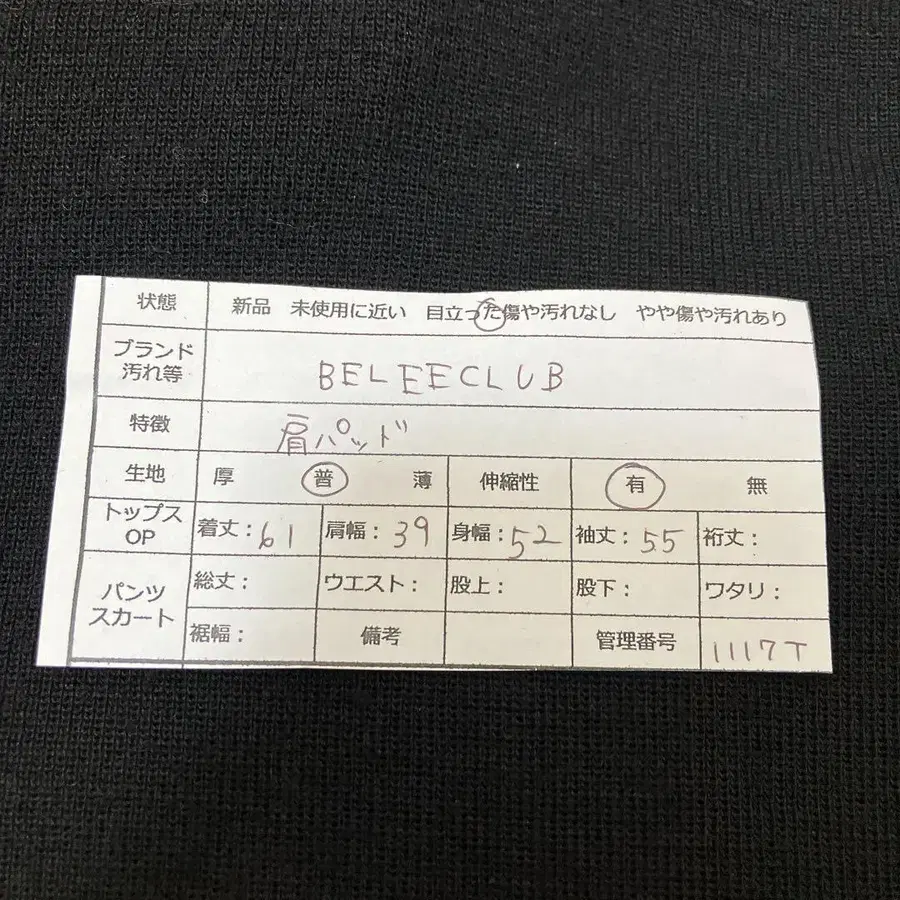 状態 新品 未使用に近い 目立った傷や汚れなし やや傷や汚れあり
ブランド
汚れ等 BELEECLUB
特徴 肩パッド
生地 厚 普 薄 伸縮性 有 無
トップス
OP 着丈:61 肩幅:39 身幅:52 袖丈:55 裄丈:
パンツ
スカート 総丈: ウエスト: 股上: 股下: ワタリ:
裾幅: 備考 管理番号 1117T